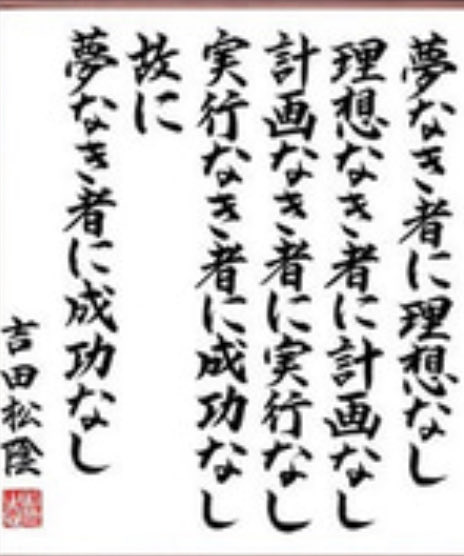 夢なき者に理想なし
理想なき者に計画なし
計画なき者に実行なし
実行なき者に成功なし
故に
夢なき者に成功なし
吉田松陰